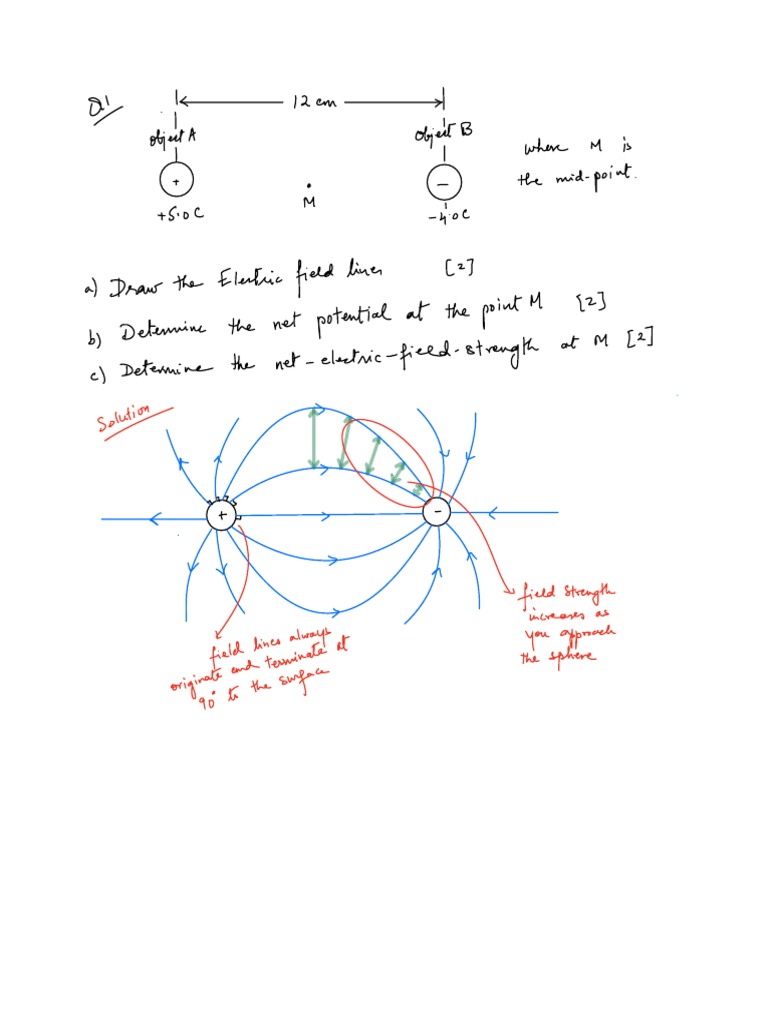 Q1
12 cm
Object A
Object B
+
−
+5.0 C
M
−4.0 C
where M is
the mid-point.
a) Draw the Electric field lines [2]
b) Determine the net potential at the point M [2]
c) Determine the net-electric-field-strength at M [2]
Solution
+
-
field strength
increases as
you approach
the sphere
field lines always
originate and terminate at
90° to the surface